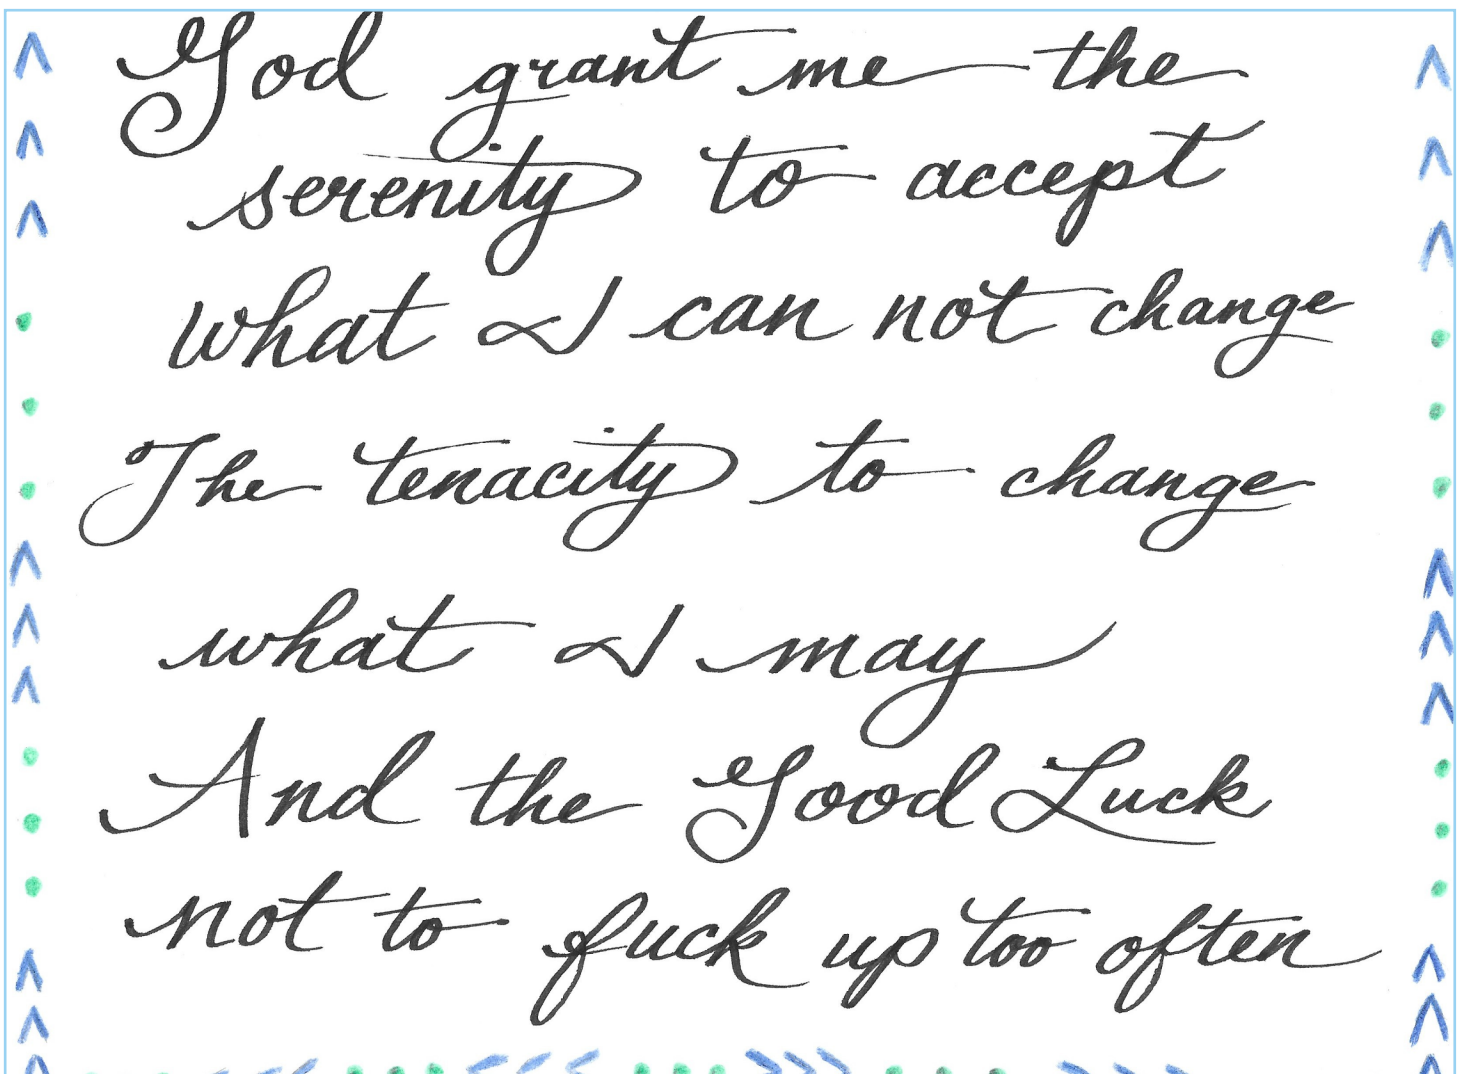 God grant me the
serenity to accept
what I can not change
The tenacity to change
what I may
And the Good Luck
not to fuck up too often